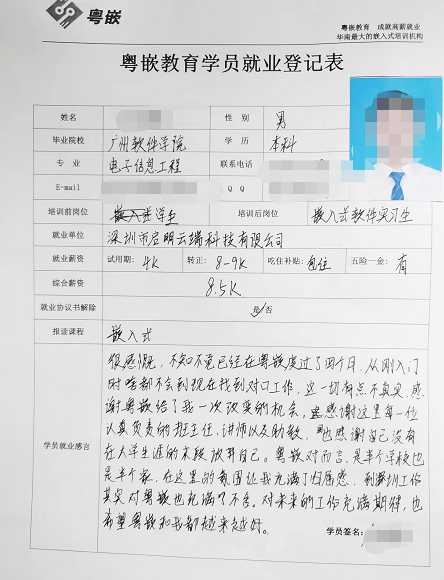 粤嵌
粤嵌教育 成就高薪就业
华南最大的嵌入式培训机构
粤嵌教育学员就业登记表
姓名 性别 男
毕业院校 广州软件学院 学历 本科
专业 电子信息工程 联系电话
E-mail QQ
培训前岗位 学生 培训后岗位 嵌入式软件实习生
就业单位 深圳市启明云端科技有限公司
就业薪资 试用期: 4K 转正: 8-9K 吃住补贴: 包住 五险一金: 有
综合薪资 8.5K
就业协议书解除 是/否
报读课程 嵌入式
学员就业感言
很感慨,不知不觉已经在粤嵌度过了两个月,从刚入门
时啥都不会到现在找到对口工作,这一切有点不真实,感
谢粤嵌给了我一次改变的机会,感谢这里每一位
认真负责的班主任、讲师以及助教,也感谢自己没有
在大学生涯的末段放弃自己。粤嵌对而言,是半个学校也
是半个家,在这里的氛围让我充满了归属感,到深圳工作
其实对粤嵌也充满了不舍。对未来的工作充满期待,也
希望粤嵌和我都越来越好。
学员签名: